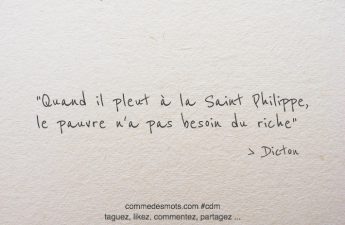 "Quand il pleut à la Saint Philippe,
le pauvre n'a pas besoin du riche"
> Dicton
commedesmots.com #cdm
taguez, likez, commentez, partagez ...